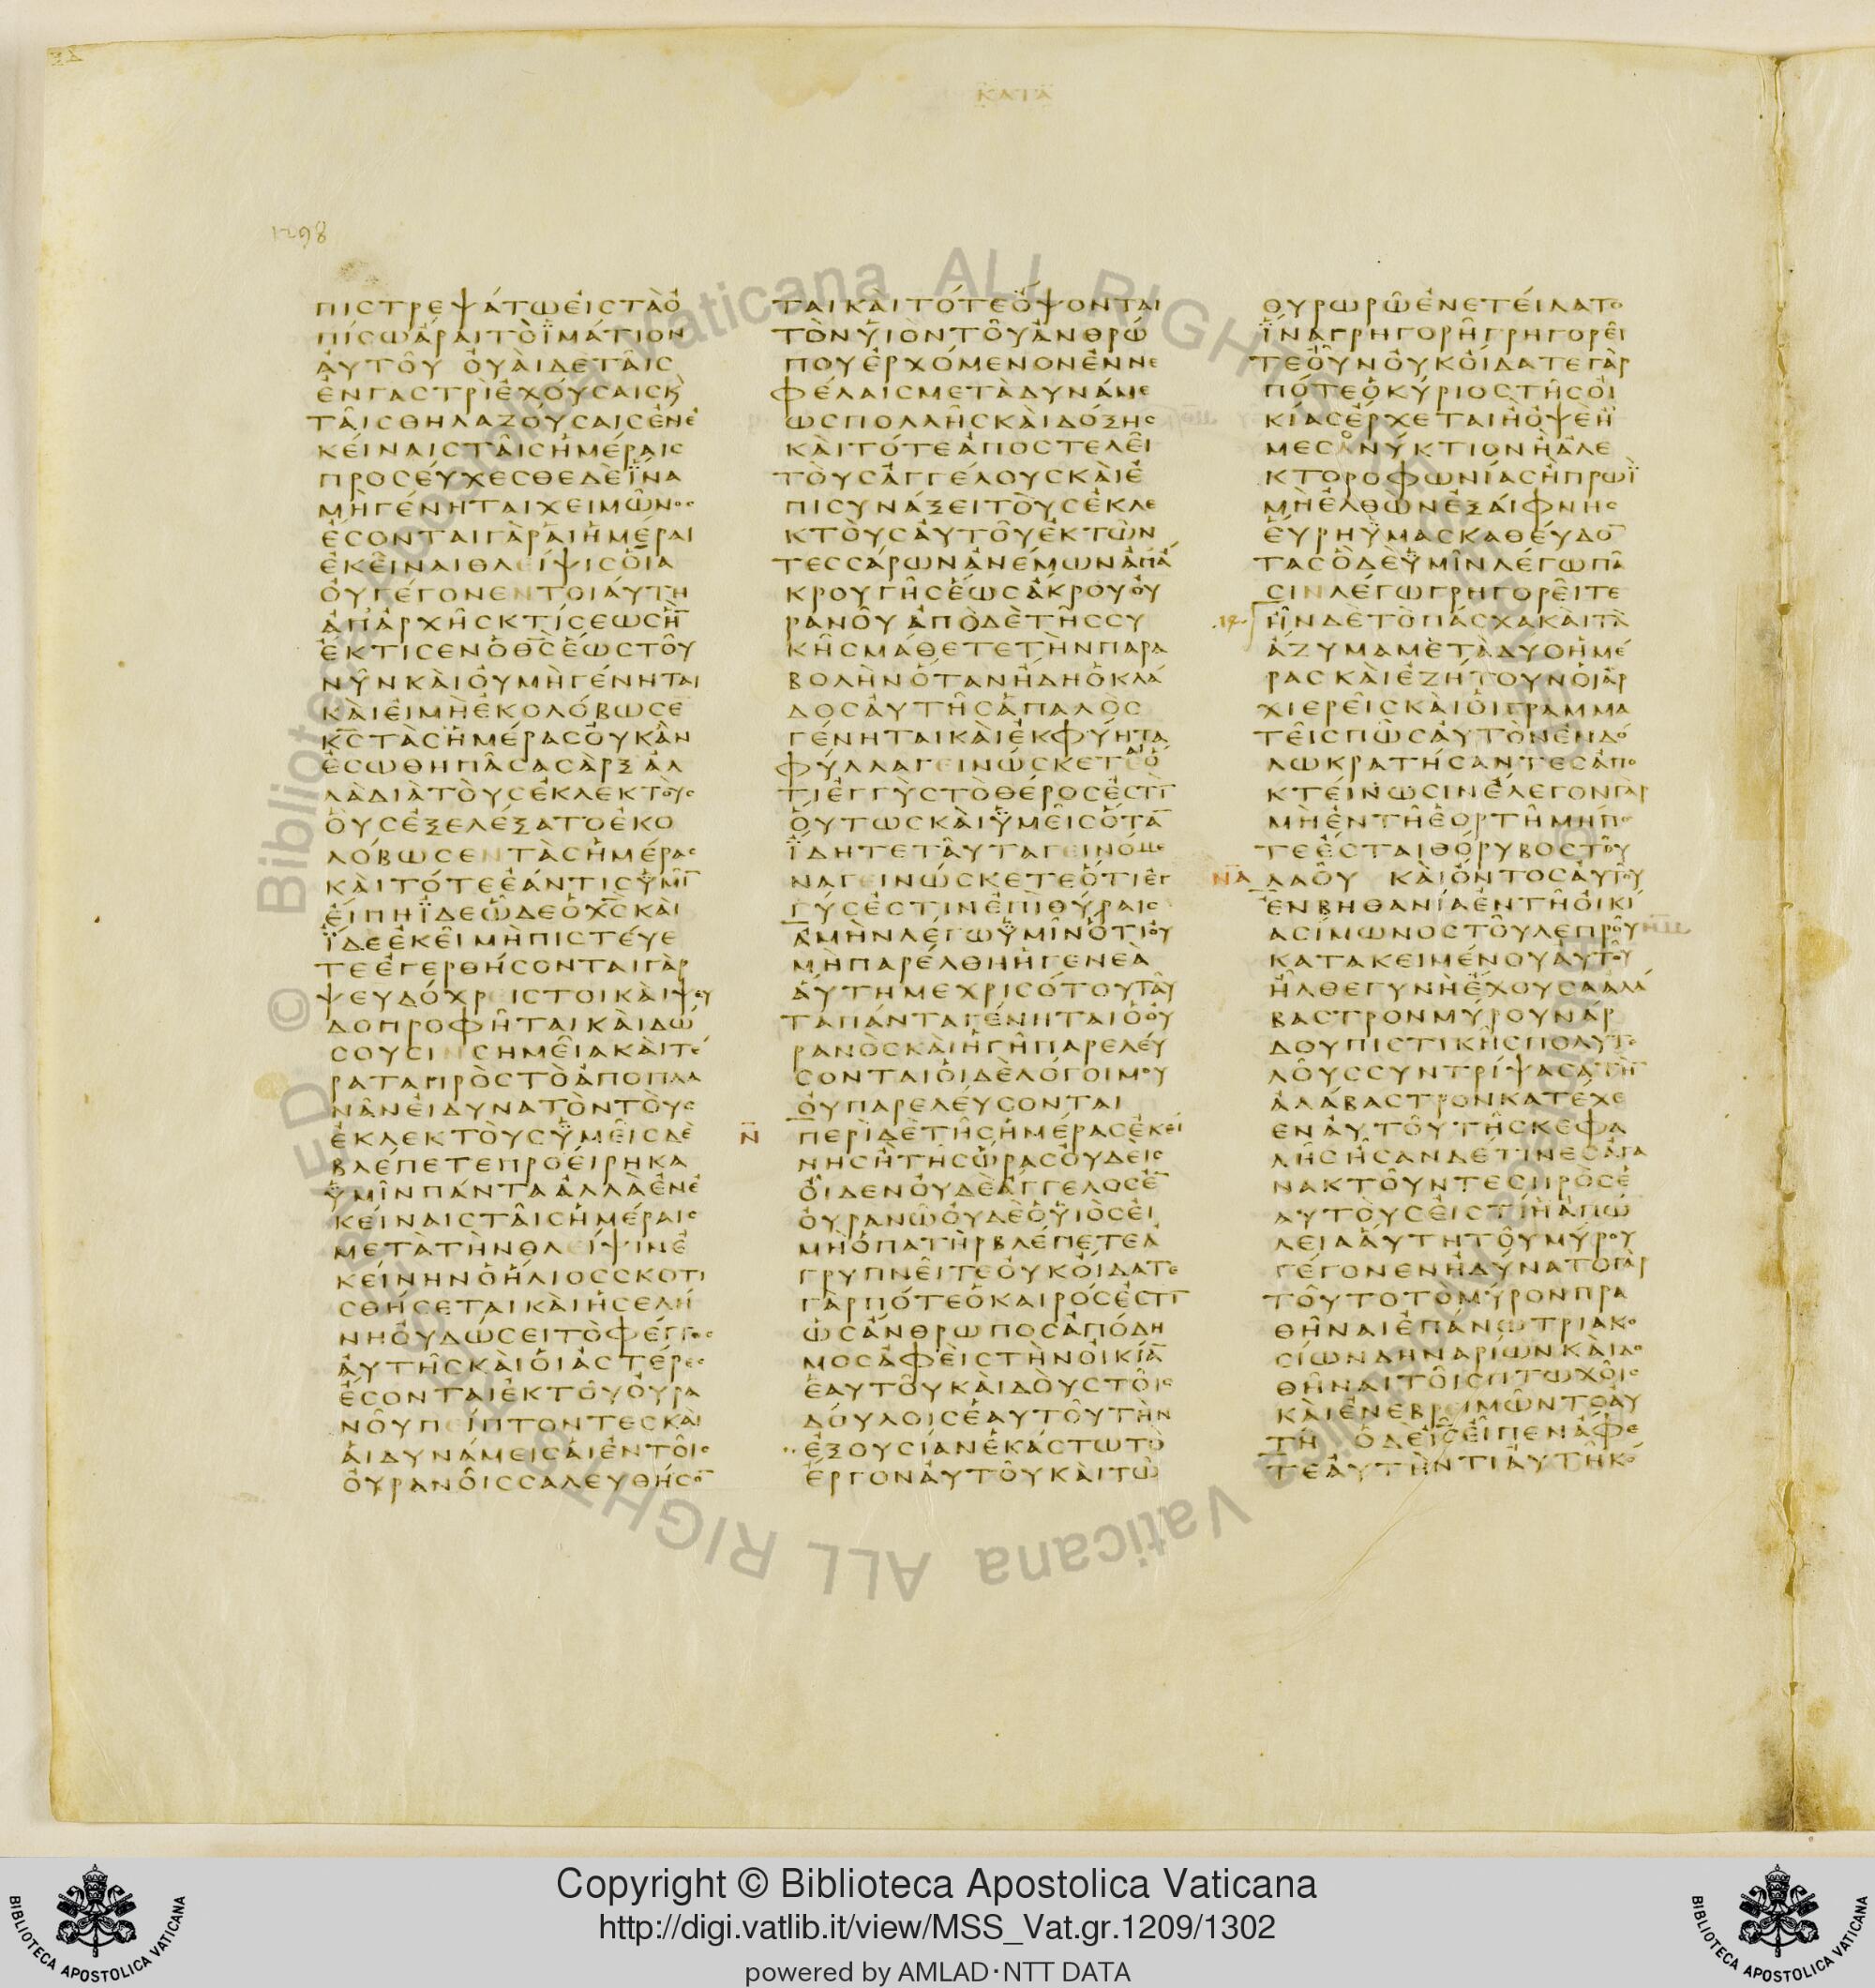 ΚΑΤΑ
1298
ΠΙCΤΡΕΨΑΤΩΕΙCΤΑΟ
ΠΙCΩΑΡΑΙΤΟΪΜΑΤΙΟΝ
ΑΥΤΟΥ ΟΥΑΙΔΕΤΑΙC
ΕΝΓΑCΤΡΙΕΧΟΥCΑΙCΚ
ΤΑΙCΘΗΛΑΖΟΥCΑΙCΕΝΕ
ΚΕΙΝΑΙCΤΑΙCΗΜΕΡΑΙC
ΠΡΟCΕΥΧΕCΘΕΔΕΪΝΑ
ΜΗΓΕΝΗΤΑΙΧΕΙΜΩΝΟC
ΕCΟΝΤΑΙΓΑΡΑΙΗΜΕΡΑΙ
ΕΚΕΙΝΑΙΘΛΕΙΨΙCΟΙΑ
ΟΥΓΕΓΟΝΕΝΤΟΙΑΥΤΗ
ΑΠΑΡΧΗCΚΤΙCΕΩCΗ̅
ΕΚΤΙCΕΝΟΘ̅C̅ΕΩCΤΟΥ
ΝΥΝΚΑΙΟΥΜΗΓΕΝΗΤΑΙ
ΚΑΙΕΙΜΗΕΚΟΛΟΒΩCΕ
Κ̅C̅ΤΑCΗΜΕΡΑCΟΥΚΑΝ
ΕCΩΘΗΠΑCΑCΑΡΞΑΛ
ΛΑΔΙΑΤΟΥCΕΚΛΕΚΤΟΥC
ΟΥCΕΞΕΛΕΞΑΤΟΕΚΟ
ΛΟΒΩCΕΝΤΑCΗΜΕΡΑC
ΚΑΙΤΟΤΕΕΑΝΤΙCΫΜΙ̅
ΕΙΠΗΪΔΕΩΔΕΟΧ̅C̅ΚΑΙ
ΪΔΕΕΚΕΙΜΗΠΙCΤΕΥΕ
ΤΕΕΓΕΡΘΗCΟΝΤΑΙΓΑΡ
ΨΕΥΔΟΧΡΕΙCΤΟΙΚΑΙΨΕΥ
ΔΟΠΡΟΦΗΤΑΙΚΑΙΔΩ
CΟΥCΙΝCΗΜΕΙΑΚΑΙΤΕ
ΡΑΤΑΠΡΟCΤΟΑΠΟΠΛΑ
ΝΑΝΕΙΔΥΝΑΤΟΝΤΟΥC
ΕΚΛΕΚΤΟΥCΫΜΕΙCΔΕ
ΒΛΕΠΕΤΕΠΡΟΕΙΡΗΚΑ
ΫΜΙΝΠΑΝΤΑΑΛΛΑΕΝΕ
ΚΕΙΝΑΙCΤΑΙCΗΜΕΡΑΙC
ΜΕΤΑΤΗΝΘΛΕΙΨΙΝΕ
ΚΕΙΝΗΝΟΗΛΙΟCCΚΟΤΙ
CΘΗCΕΤΑΙΚΑΙΗCΕΛΗ
ΝΗΟΥΔΩCΕΙΤΟΦΕΓΓΟC
ΑΥΤΗCΚΑΙΟΙΑCΤΕΡΕC
ΕCΟΝΤΑΙΕΚΤΟΥΟΥΡΑ
ΝΟΥΠΕΙΠΤΟΝΤΕCΚΑΙ
ΑΙΔΥΝΑΜΕΙCΑΙΕΝΤΟΙC
ΟΥΡΑΝΟΙCCΑΛΕΥΘΗCΟ̅
ΤΑΙΚΑΙΤΟΤΕΟΨΟΝΤΑΙ
ΤΟΝΫΙΟΝΤΟΥΑΝΘΡΩ
ΠΟΥΕΡΧΟΜΕΝΟΝΕΝΝΕ
ΦΕΛΑΙCΜΕΤΑΔΥΝΑΜΕ
ΩCΠΟΛΛΗCΚΑΙΔΟΞΗC
ΚΑΙΤΟΤΕΑΠΟCΤΕΛΕΙ
ΤΟΥCΑΓΓΕΛΟΥCΚΑΙΕ
ΠΙCΥΝΑΞΕΙΤΟΥCΕΚΛΕ
ΚΤΟΥCΑΥΤΟΥΕΚΤΩΝ
ΤΕCCΑΡΩΝΑΝΕΜΩΝΑΠΑ
ΚΡΟΥΓΗCΕΩCΑΚΡΟΥΟΥ
ΡΑΝΟΥ ΑΠΟΔΕΤΗCCΥ
ΚΗCΜΑΘΕΤΕΤΗΝΠΑΡΑ
ΒΟΛΗΝΟΤΑΝΗΔΗΟΚΛΑ
ΔΟCΑΥΤΗCΑΠΑΛΟC
ΓΕΝΗΤΑΙΚΑΙΕΚΦΥΗΤΑ
ΦΥΛΛΑΓΕΙΝΩCΚΕΤΕΟ
ΤΙΕΓΓΥCΤΟΘΕΡΟCΕCΤΙ̅
ΟΥΤΩCΚΑΙΫΜΕΙCΟΤΑ̅
ΪΔΗΤΕΤΑΥΤΑΓΕΙΝΟΜΕ
ΝΑΓΕΙΝΩCΚΕΤΕΟΤΙΕΓ
ΓΥCΕCΤΙΝΕΠΙΘΥΡΑΙC
ΑΜΗΝΛΕΓΩΫΜΙΝΟΤΙΟΥ
ΜΗΠΑΡΕΛΘΗΗΓΕΝΕΑ
ΑΥΤΗΜΕΧΡΙCΟΤΟΥΤΑΥ
ΤΑΠΑΝΤΑΓΕΝΗΤΑΙΟΟΥ
ΡΑΝΟCΚΑΙΗΓΗΠΑΡΕΛΕΥ
CΟΝΤΑΙΟΙΔΕΛΟΓΟΙΜΟΥ
ΟΥΠΑΡΕΛΕΥCΟΝΤΑΙ
Ν̅ ΠΕΡΙΔΕΤΗCΗΜΕΡΑCΕΚΕΙ
ΝΗCΗΤΗCΩΡΑCΟΥΔΕΙC
ΟΙΔΕΝΟΥΔΕΑΓΓΕΛΟCΕ̅
ΟΥΡΑΝΩΟΥΔΕΟΫΙΟCΕΙ
ΜΗΟΠΑΤΗΡΒΛΕΠΕΤΕΑ
ΓΡΥΠΝΕΙΤΕΟΥΚΟΙΔΑΤΕ
ΓΑΡΠΟΤΕΟΚΑΙΡΟCΕCΤΙ̅
ΩCΑΝΘΡΩΠΟCΑΠΟΔΗ
ΜΟCΑΦΕΙCΤΗΝΟΙΚΙΑ̅
ΕΑΥΤΟΥΚΑΙΔΟΥCΤΟΙC
ΔΟΥΛΟΙCΕΑΥΤΟΥΤΗΝ
ΕΞΟΥCΙΑΝΕΚΑCΤΩΤΟ
ΕΡΓΟΝΑΥΤΟΥΚΑΙΤΩ
ΘΥΡΩΡΩΕΝΕΤΕΙΛΑΤΟ
ΪΝΑΓΡΗΓΟΡΗΓΡΗΓΟΡΕΙ
ΤΕΟΥΝΟΥΚΟΙΔΑΤΕΓΑΡ
ΠΟΤΕΟΚΥΡΙΟCΤΗCΟΙ
ΚΙΑCΕΡΧΕΤΑΙΗΟΨΕΗ
ΜΕCΟΝΥΚΤΙΟΝΗΑΛΕ
ΚΤΟΡΟΦΩΝΙΑCΗΠΡΩΪ
ΜΗΕΛΘΩΝΕΞΑΙΦΝΗC
ΕΥΡΗΫΜΑCΚΑΘΕΥΔΟ̅
ΤΑCΟΔΕΫΜΙΝΛΕΓΩΠΑ
CΙΝΛΕΓΩΓΡΗΓΟΡΕΙΤΕ
ΗΝΔΕΤΟΠΑCΧΑΚΑΙΤΑ
ΑΖΥΜΑΜΕΤΑΔΥΟΗΜΕ
ΡΑCΚΑΙΕΖΗΤΟΥΝΟΙΑΡ
ΧΙΕΡΕΙCΚΑΙΟΙΓΡΑΜΜΑ
ΤΕΙCΠΩCΑΥΤΟΝΕΝΔΟ
ΛΩΚΡΑΤΗCΑΝΤΕCΑΠΟ
ΚΤΕΙΝΩCΙΝΕΛΕΓΟΝΓΑΡ
ΜΗΕΝΤΗΕΟΡΤΗΜΗΠΟ
ΤΕΕCΤΑΙΘΟΡΥΒΟCΤΟΥ
ΝΑ ΛΑΟΥ ΚΑΙΟΝΤΟCΑΥΤΟΥ
ΕΝΒΗΘΑΝΙΑΕΝΤΗΟΙΚΙ
ΑCΙΜΩΝΟCΤΟΥΛΕΠΡΟΥ
ΚΑΤΑΚΕΙΜΕΝΟΥΑΥΤΟΥ
ΗΛΘΕΓΥΝΗΕΧΟΥCΑΑΛΑ
ΒΑCΤΡΟΝΜΥΡΟΥΝΑΡ
ΔΟΥΠΙCΤΙΚΗCΠΟΛΥΤΕ
ΛΟΥCCΥΝΤΡΙΨΑCΑΤΗ̅
ΑΛΑΒΑCΤΡΟΝΚΑΤΕΧΕ
ΕΝΑΥΤΟΥΤΗCΚΕΦΑ
ΛΗCΗCΑΝΔΕΤΙΝΕCΑΓΑ
ΝΑΚΤΟΥΝΤΕCΠΡΟCΕ
ΑΥΤΟΥCΕΙCΤΙΗΑΠΩ
ΛΕΙΑΑΥΤΗΤΟΥΜΥΡΟΥ
ΓΕΓΟΝΕΝΗΔΥΝΑΤΟΓΑΡ
ΤΟΥΤΟΤΟΜΥΡΟΝΠΡΑ
ΘΗΝΑΙΕΠΑΝΩΤΡΙΑΚΟ
CΙΩΝΔΗΝΑΡΙΩΝΚΑΙΔΟ
ΘΗΝΑΙΤΟΙCΠΤΩΧΟΙC
ΚΑΙΕΝΕΒΡΕΙΜΩΝΤΟΑΥ
ΤΗ ΟΔΕΙ̅C̅ΕΙΠΕΝΑΦΕ
ΤΕΑΥΤΗΝΤΙΑΥΤΗΚΟ
© Biblioteca Apostolica Vaticana ALL RIGHTS RESERVED
Copyright © Biblioteca Apostolica Vaticana
http://digi.vatlib.it/view/MSS_Vat.gr.1209/1302
powered by AMLAD·NTT DATA
BIBLIOTECA APOSTOLICA VATICANA
BIBLIOTECA APOSTOLICA VATICANA